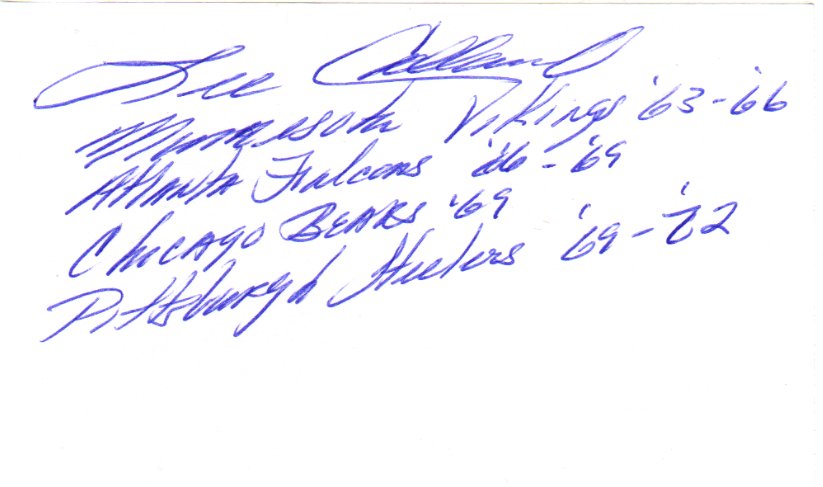 Lee Calland
Minnesota Vikings '63-'66
Atlanta Falcons '66-'69
Chicago BEARS '69
Pittsburgh Steelers '69-'72